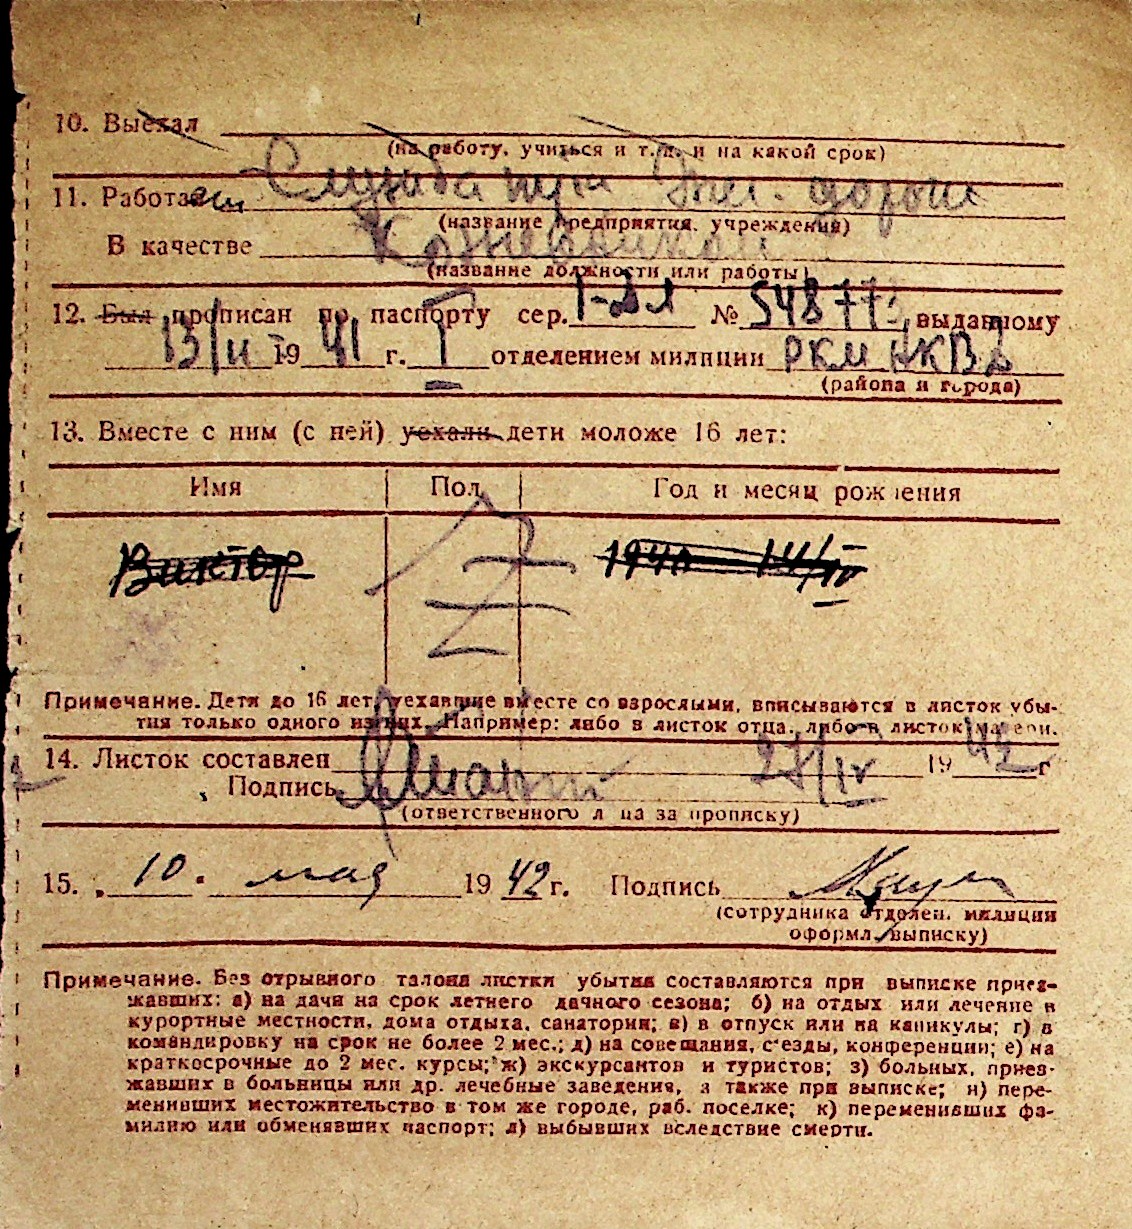 10. Выехал
(на работу, учиться и т. п. и на какой срок)
Служба пути Жел. дороги
11. Работает
(название предприятия, учреждения)
В качестве
(название должности или работы)
12. Был прописан по паспорту сер. № 548773, выданному
13/II 1941 г. I отделением милиции РКМ НКВД
(района и города)
13. Вместе с ним (с ней) уехали дети моложе 16 лет:
Имя Пол Год и месяц рождения
Виктор 1940 14/IV
Примечание. Дети до 16 лет, уехавшие вместе со взрослыми, вписываются в листок убы-
тия только одного из них. Например: либо в листок отца, либо в листок матери.
14. Листок составлен 27/IV 1942 г
Подпись
(ответственного лица за прописку)
15. 10 мая 1942 г. Подпись
(сотрудника отделен. милиции
оформл. выписку)
Примечание. Без отрывного талона листки убытия составляются при выписке приез-
жавших: а) на дачи на срок летнего дачного сезона; б) на отдых или лечение в
курортные местности, дома отдыха, санатории; в) в отпуск или на каникулы; г) в
командировку на срок не более 2 мес.; д) на совещания, с'езды, конференции; е) на
краткосрочные до 2 мес. курсы; ж) экскурсантов и туристов; з) больных, приез-
жавших в больницы или др. лечебные заведения, а также при выписке; и) пере-
менивших местожительство в том же городе, раб. поселке; к) переменивших фа-
милию или обменявших паспорт; л) выбывших вследствие смерти.